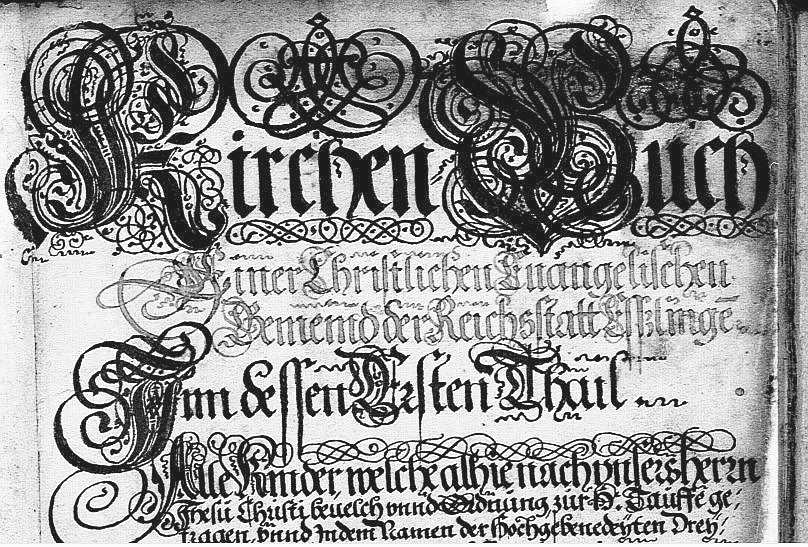 Kirchen-Buch
Einer Christlichen Euangelischen
Gemeind der Reichsstatt Esslinge͂
Inn dessen Ersten Thail
Alle Kinder, welche alhie nach vnsers herrn
Jhesu Christi beuelch vnnd Ordnung zur H: Tauffe ge,
tragen, vnnd In dem Namen der Hochgebenedeyten Drey,